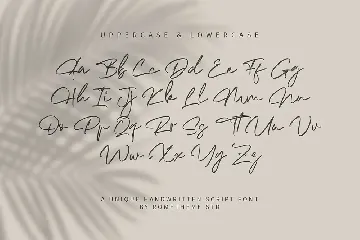 UPPERCASE & LOWERCASE
Aa Bb Cc Dd Ee Ff Gg
Hh Ii Jj Kk Ll Mm Nn
Oo Pp Qq Rr Ss Tt Uu Vv
Ww Xx Yy Zz
A UNIQUE HANDWRITTEN SCRIPT FONT
BY ROMETHEME STD